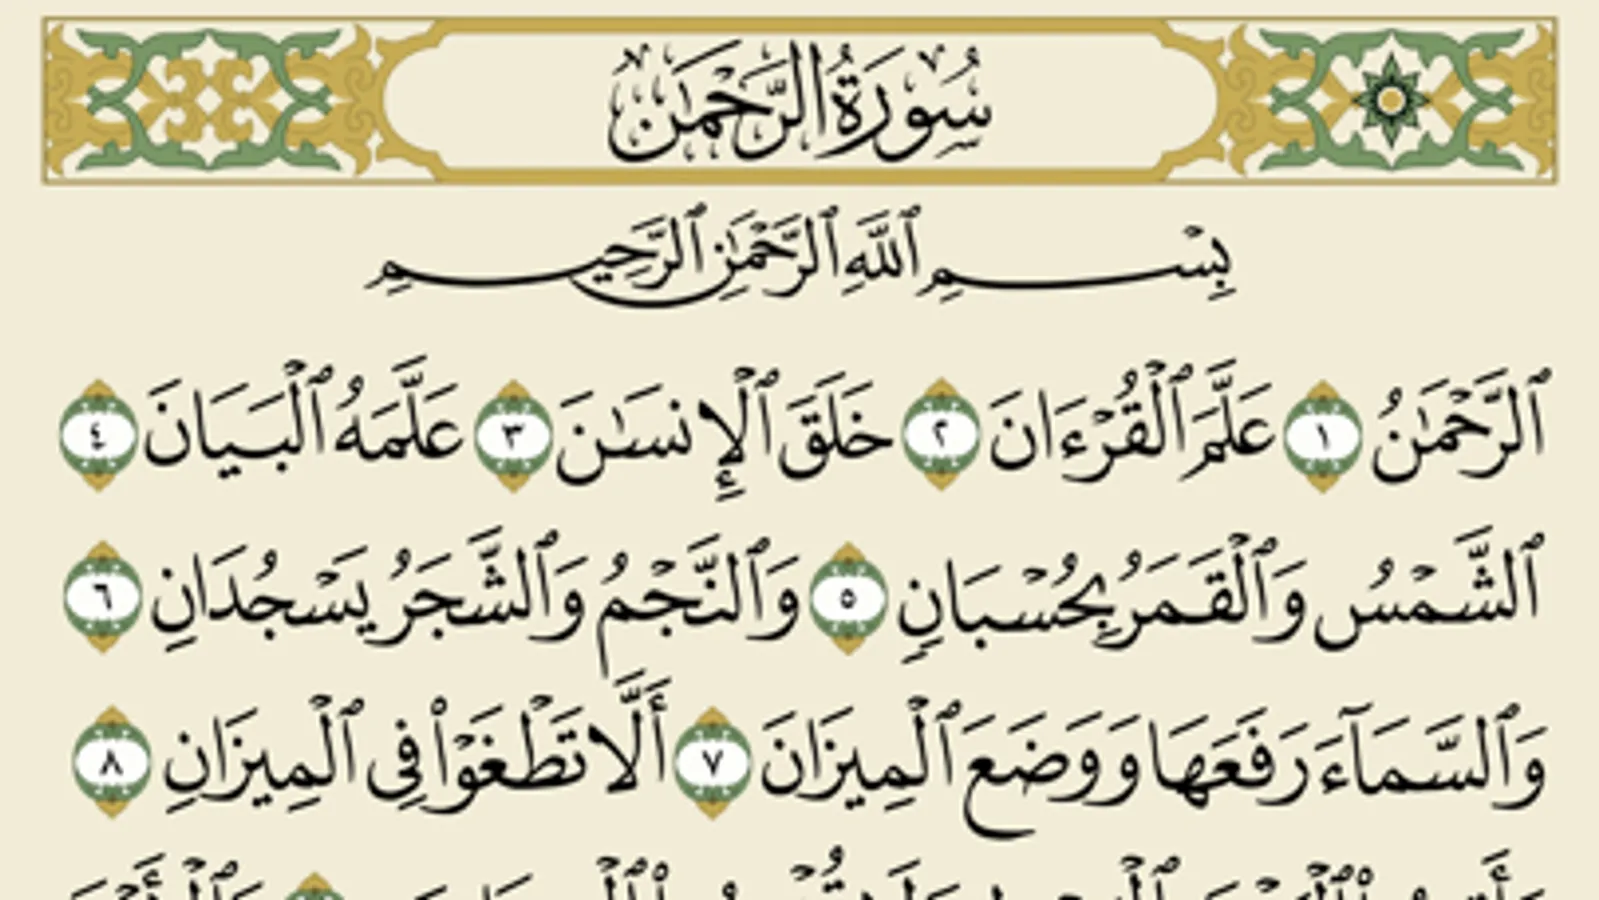 سُورَةُ الرَّحْمَٰن
بِسْمِ ٱللَّهِ ٱلرَّحْمَٰنِ ٱلرَّحِيمِ
ٱلرَّحْمَٰنُ ١ عَلَّمَ ٱلْقُرْءَانَ ٢ خَلَقَ ٱلْإِنسَٰنَ ٣ عَلَّمَهُ ٱلْبَيَانَ ٤
ٱلشَّمْسُ وَٱلْقَمَرُ بِحُسْبَانٍ ٥ وَٱلنَّجْمُ وَٱلشَّجَرُ يَسْجُدَانِ ٦
وَٱلسَّمَآءَ رَفَعَهَا وَوَضَعَ ٱلْمِيزَانَ ٧ أَلَّا تَطْغَوْا۟ فِى ٱلْمِيزَانِ ٨